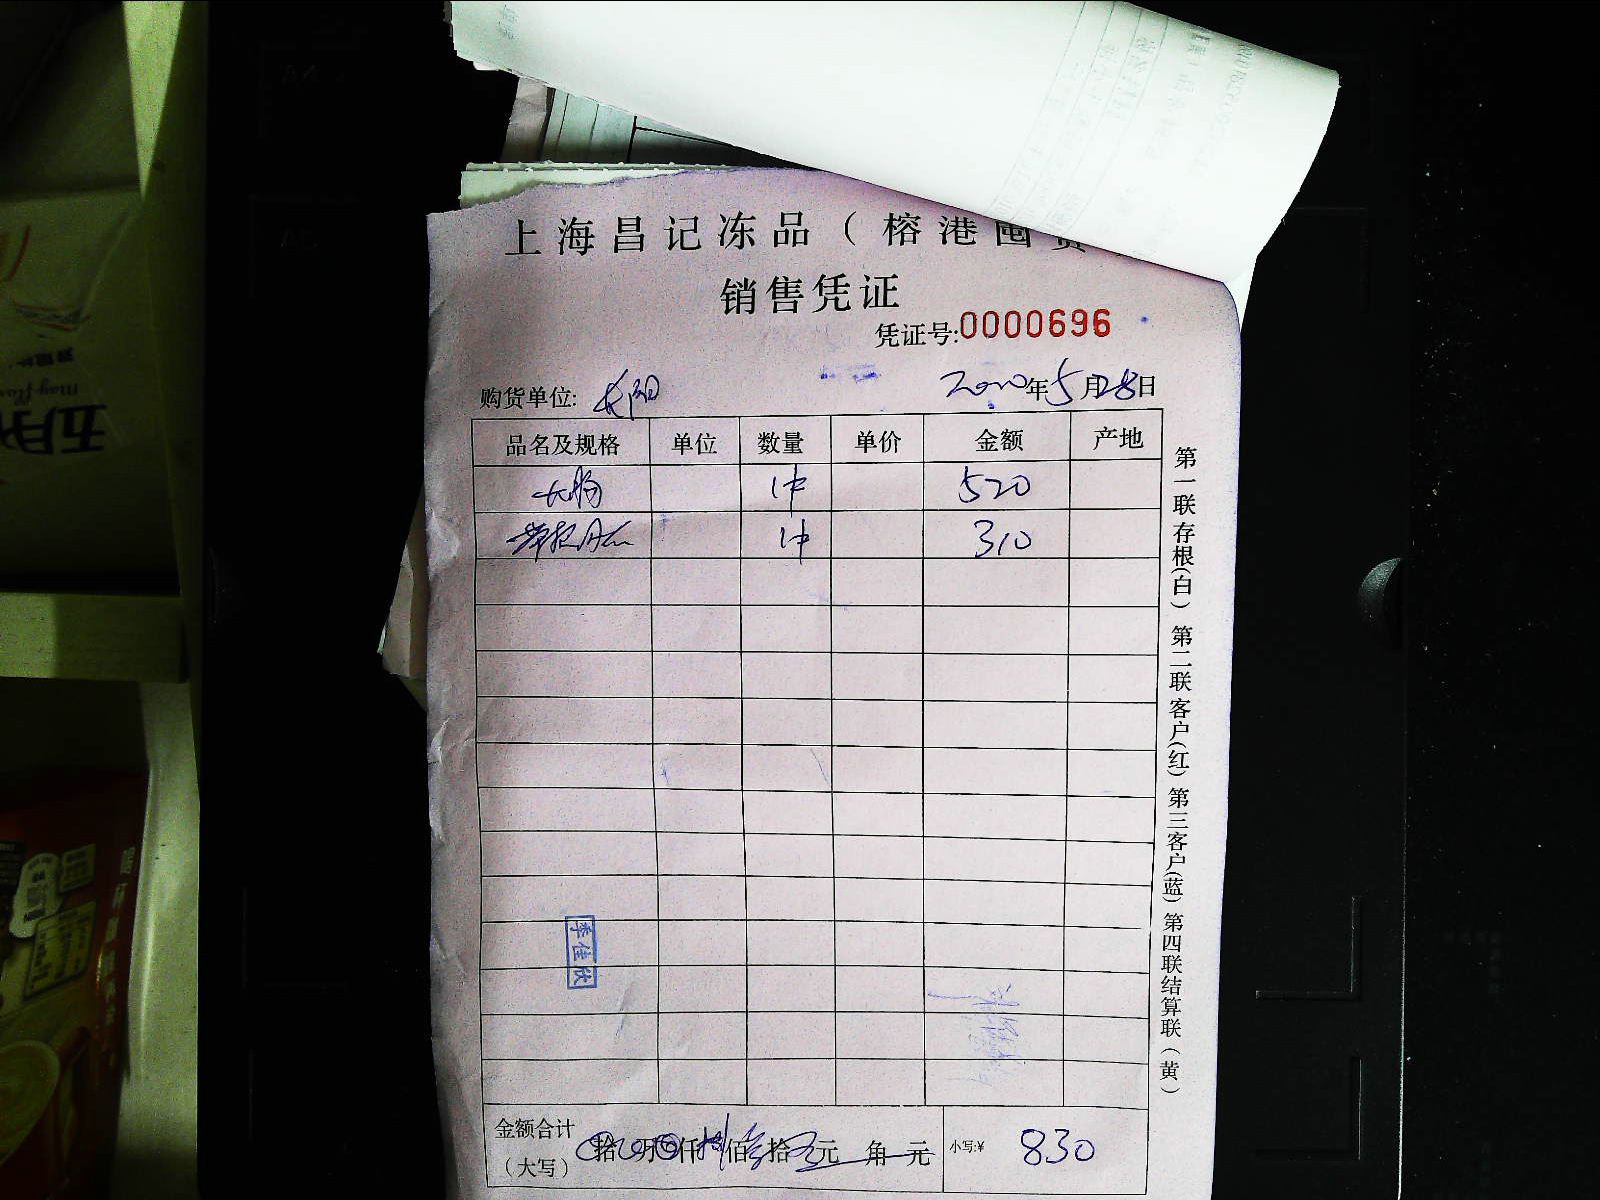 上海昌记冻品（榕港囤货
销售凭证
凭证号:0000696
购货单位: 长阳 2020年5月28日
品名及规格 单位 数量 单价 金额 产地
大肠 1件 520
1件 310
季佳欣
金额合计
（大写） 拾 万 仟 捌 佰 叁 拾 元 角 元 小写:¥ 830
第一联存根(白) 第二联客户(红) 第三客户(蓝) 第四联结算联(黄)
五月
may flower
A4
A5